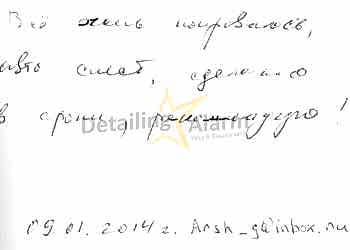 Всё очень понравилось,
авто сияет, сделано
в сроки, рекомендую!
Detailing Alarm
09.01.2014 г. Arsh_g@inbox.ru